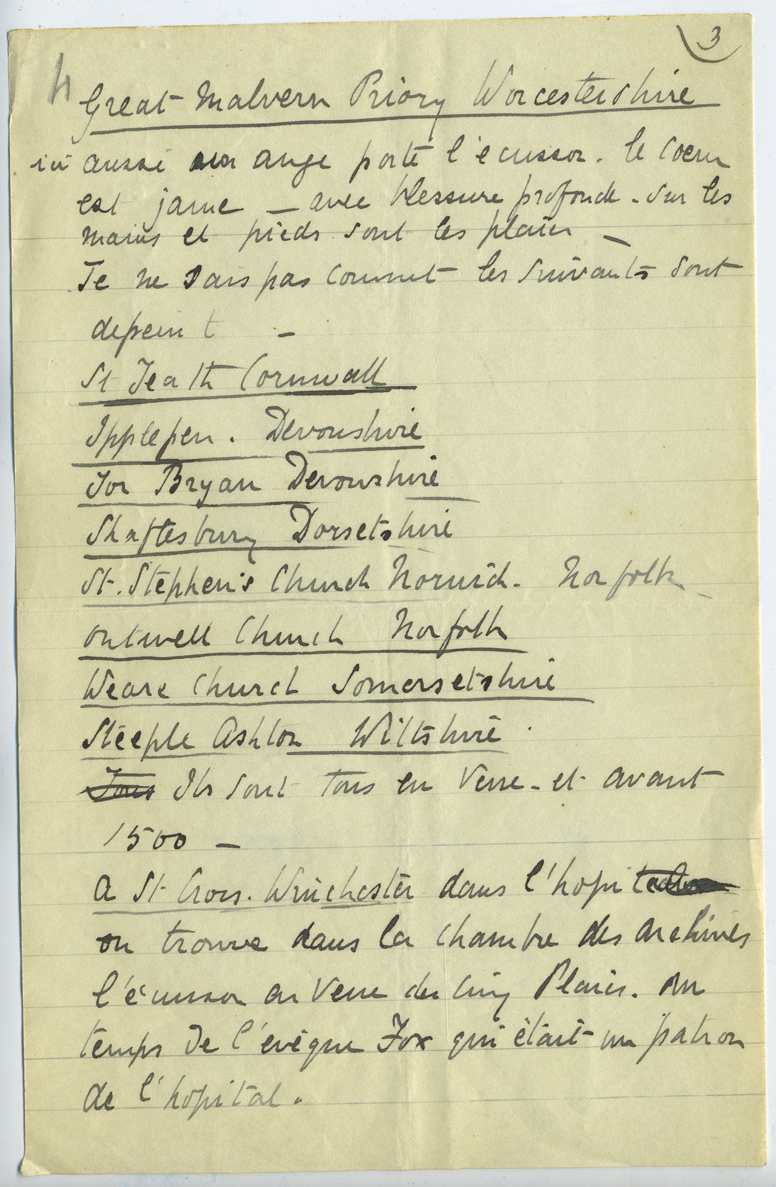 3
4
Great Malvern Priory Worcestershire
ici aussi un ange porte l'ecusson. le coeur
est jaune — avec blessure profonde - sur les
mains et pieds sont les plaies —
Je ne sais pas comment les suivants sont
depeint —
St Teath Cornwall
Ipplepen. Devonshire
Tor Bryan Devonshire
Shaftesbury Dorsetshire
St. Stephen's Church Norwich. Norfolk
Outwell Church Norfolk
Weare Church Somersetshire
Steeple Ashton Wiltshire
Tous Ils sont tous en verre - et avant
1500 —
A St Crois. Winchester dans l'hopital
on trouve dans la chambre des archives
l'écusson en verre des Cinq Plaies. au
temps de l'évêque Fox qui était un patron
de l'hopital.